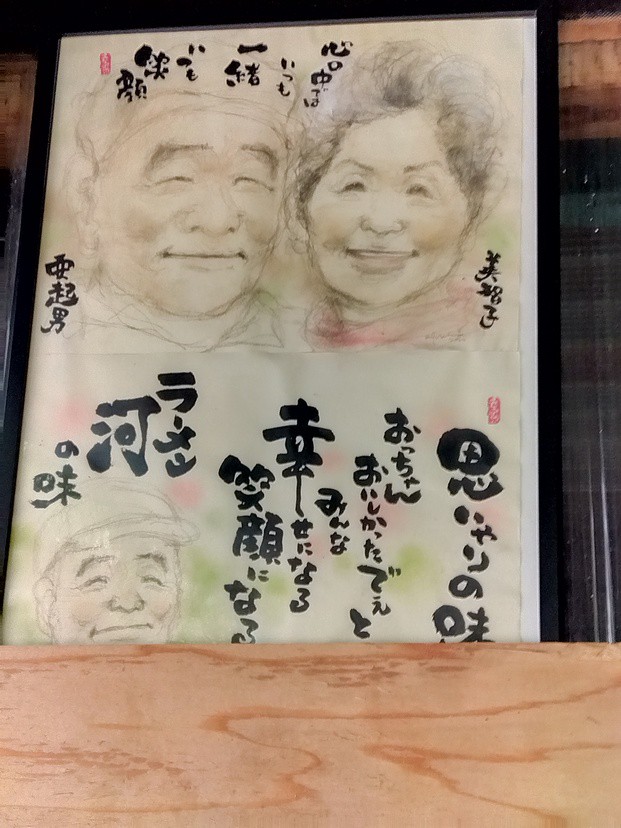 心の中では
いつも
一緒
いつも
笑顔
美智子
亜起男
思いやりの味
おっちゃん
おいしかったでぇと
みんな
幸せになる
笑顔になる
ラーメン
河
の味